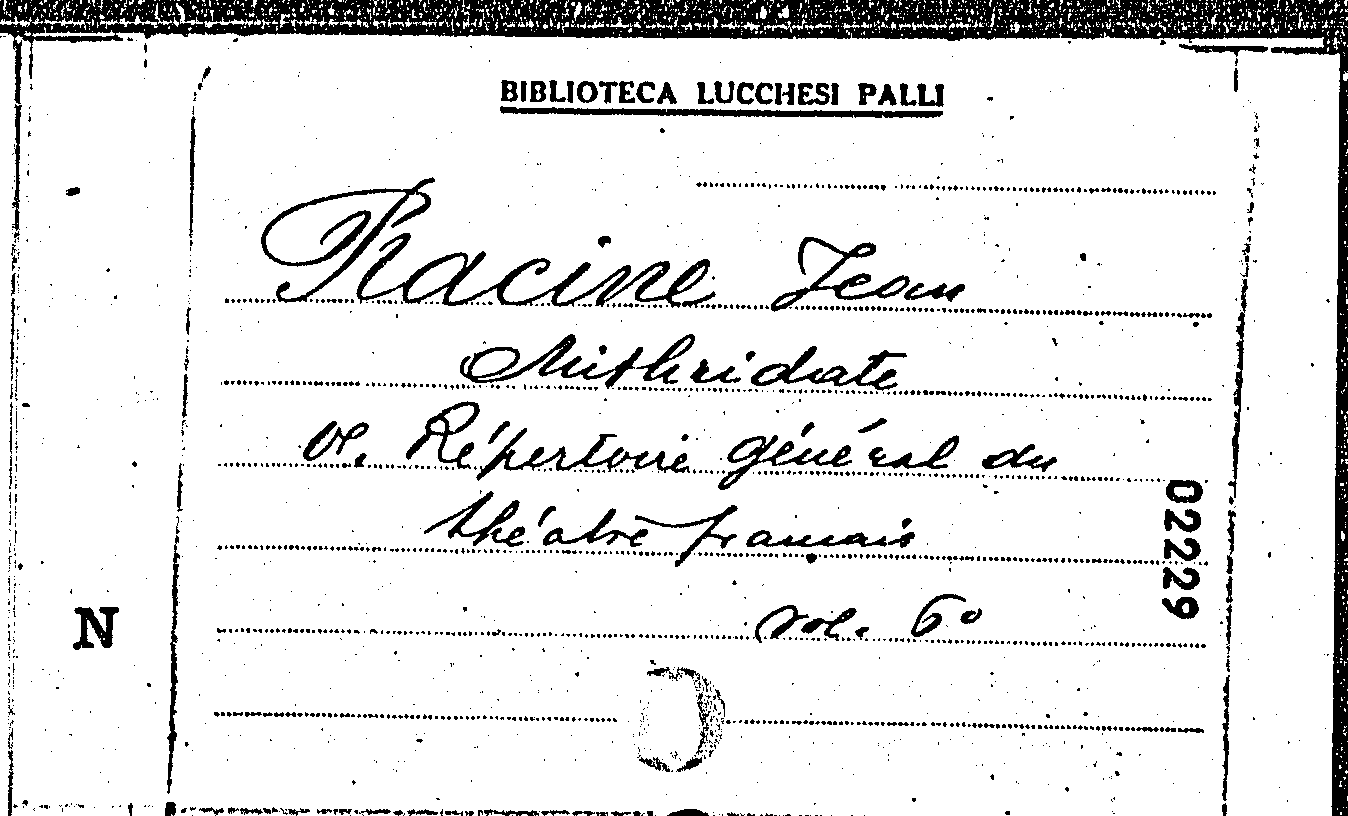 BIBLIOTECA LUCCHESI PALLI
Racine Jean
Mithridate
ve. Répertoire général du
théatre français
vol. 6º
02229
N